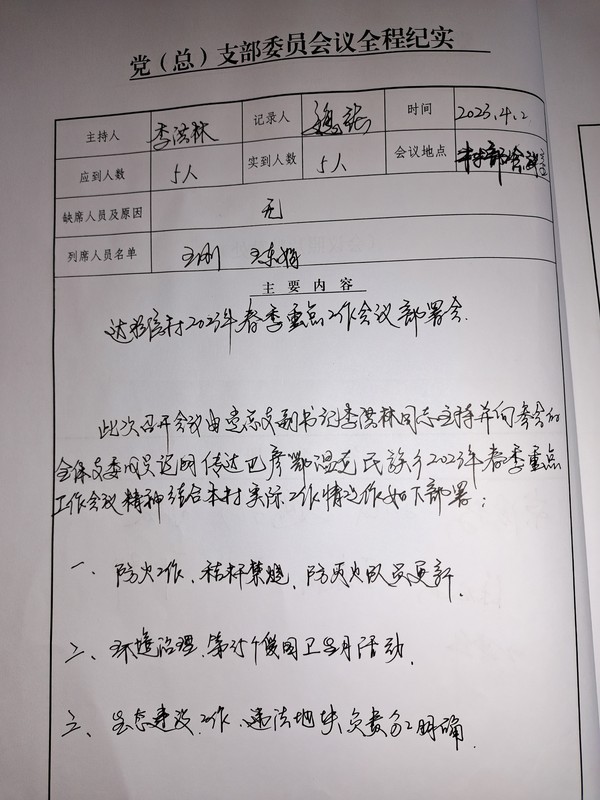 党（总）支部委员会议全程纪实
主持人 李洪林 记录人 时间 2023.4.2
应到人数 5人 实到人数 5人 会议地点 村部会议室
缺席人员及原因 无
列席人员名单 王刚
主要内容
村2023年春季重点工作会议部署会.
此次召开会议由党总支副书记李洪林同志主持并向参会的
全体支委成员说明传达巴彦鄂温克民族乡2023年春季重点
工作会议精神结合本村实际工作情况作如下部署；
一、防火工作、秸秆禁烧、防灭火队员更新.
二、环境治理、第35个爱国卫生月活动.
三、生态建设工作、违法地块负责分工明确.